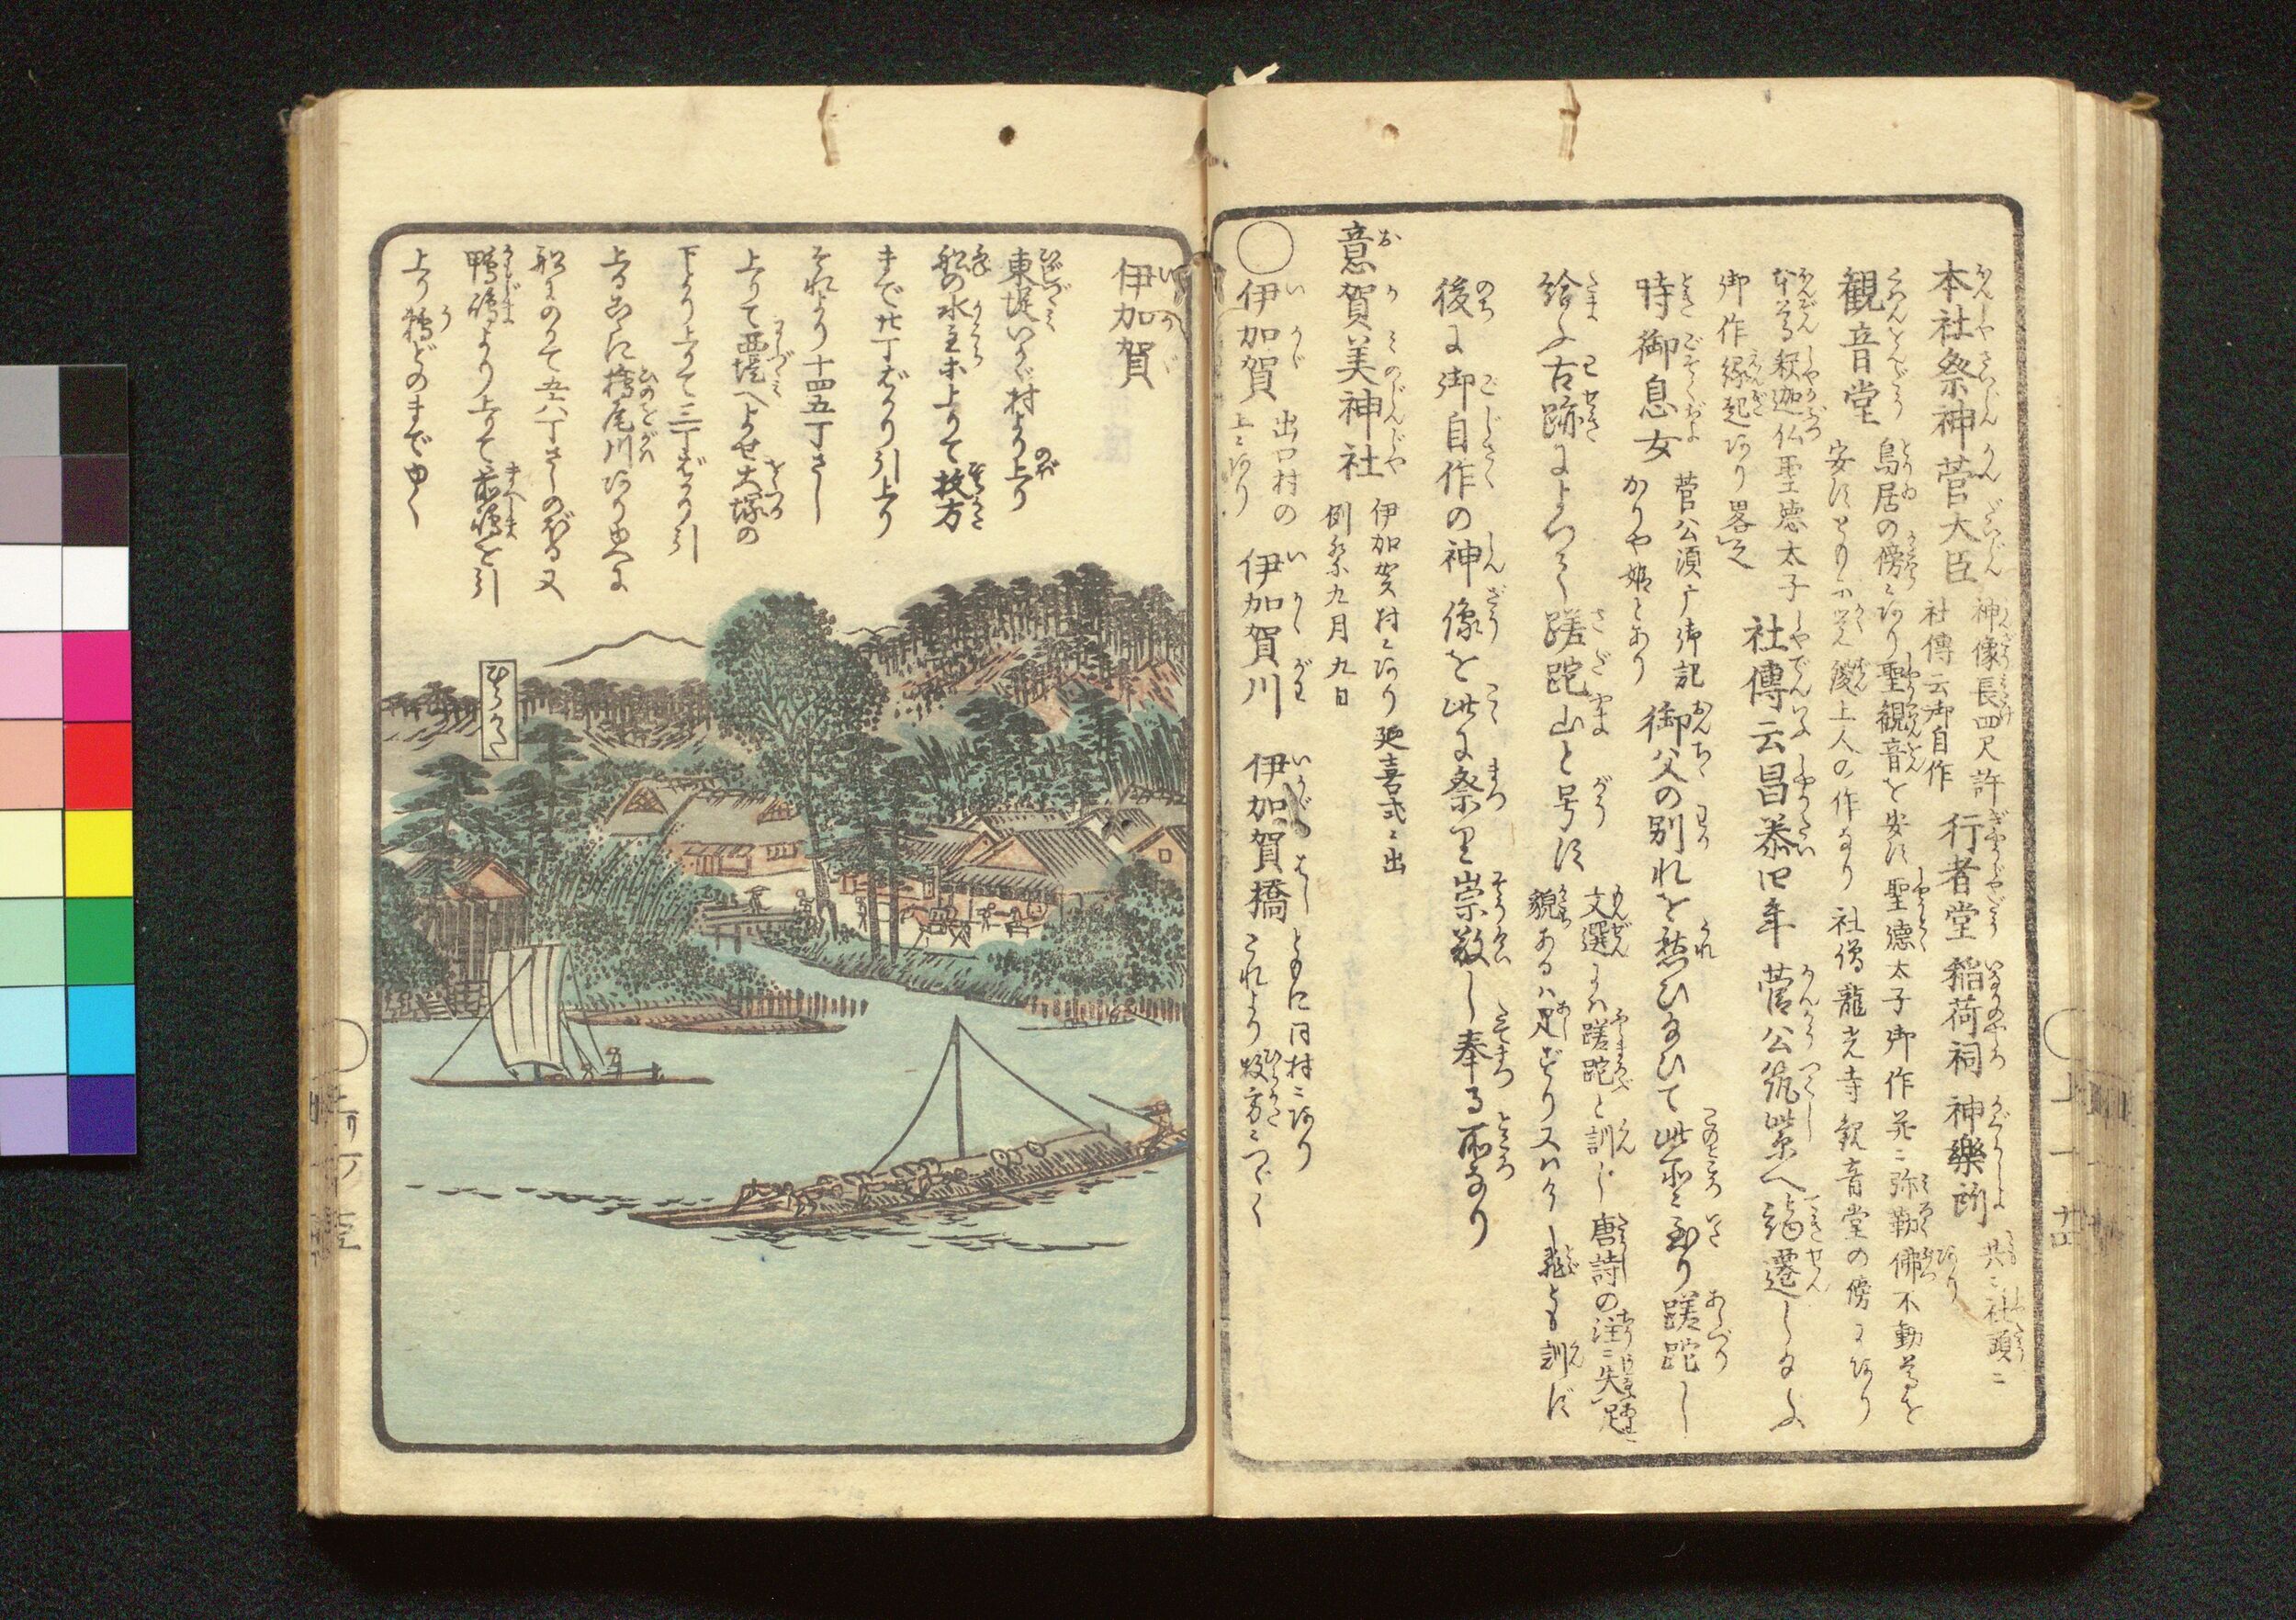 本社祭神菅大臣
神像長四尺許
社傳云御自作
行者堂 稲荷祠 神樂所
共ニ社頭ニ
あり
観音堂
鳥居の傍ニあり聖観音を安ず聖徳太子御作并ニ弥勒佛不動尊を
安ず
上人の作なり 社僧龍光寺観音堂の傍にあり
本尊釈迦仏聖徳太子
御作縁起あり畧之
社傳云昌泰四年 菅公筑紫へ謫遷し給ふ
時御息女
菅公須广御記
かりや姫とあり
御父の別れを愁ひ給ひて此所ニ至り蹉跎し
給ふ古跡によつて蹉跎山と号す
文選には蹉跎と訓し唐詩の注ニ失足
貌あるハ足ずり又ハ
とも訓ず
後に御自作の神像を此に祭里崇敬し奉る所なり
意賀美神社
伊加賀村ニあり 延喜式ニ出
例祭九月九日
○伊加賀
出口村の
上ニあり
伊加賀川 伊加賀橋
ともに同村ニあり
これより牧方ニつゞく
伊加賀
東堤いかゞ村より上り
船の水主ホ上りて枚方
まで廿丁ばかり引上り
それより十四五丁さし
上りて西堤へよせ大塚の
下より上りて三丁ばかり引
上るこゝに檜尾川あり由へに
船にのりて五六丁さしのぼる又
鴨嶋より上りて前嶋を引
上り鵜どのまでゆく
ひらかた